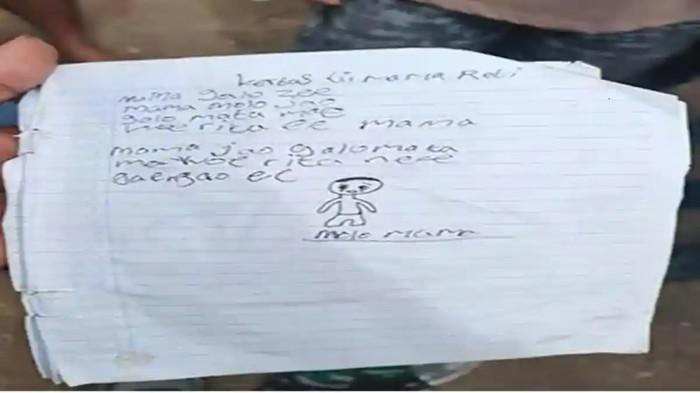 Kertas Tii Mama Reti
mama galo zee
mama molo jao
galo mata mae
woe rita ee mama
mama jao galo mata
mae woe rita ne'e
gae ngao ee
molo mama